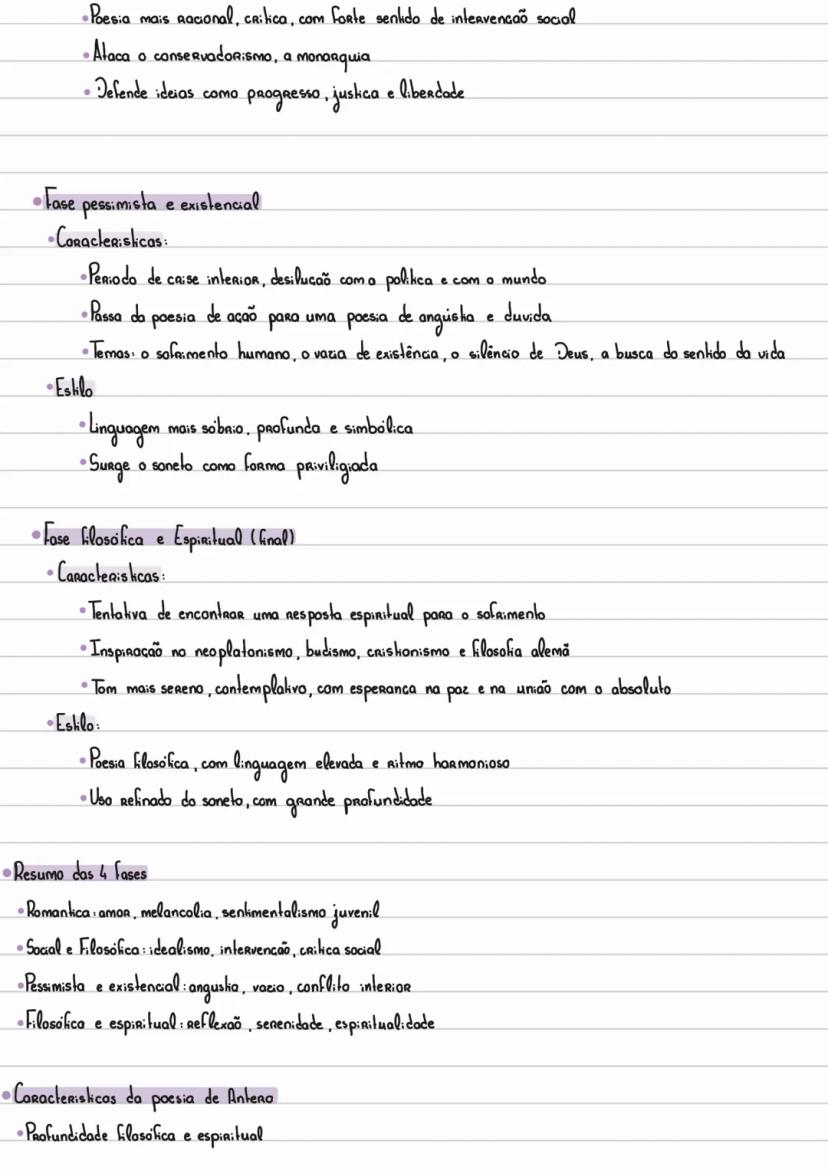 •Poesia mais racional, crítica, com forte sentido de intervenção social
•Ataca o conservadorismo, a monarquia
•Defende ideias como progresso, justica e liberdade
•Fase pessimista e existencial
•Características:
•Periodo de crise interior, desilucaõ com a politica e com o mundo
•Passa da poesia de açaõ para uma poesia de angústia e duvida
•Temas: o sofrimento humano, o vazia de existência, o silêncio de Deus, a busca do sentido da vida
•Estilo
•Linguagem mais sóbria, profunda e simbólica
•Surge o soneto como forma priviligiada
•Fase filosófica e Espiritual (final)
•Caracteristicas:
•Tentativa de encontrar uma resposta espiritual para o sofrimento
•Inspiraçaõ no neoplatonismo, budismo, cristionismo e filosofia alemã
•Tom mais sereno, contemplativo, com esperanca na paz e na uniaõ com o absoluto
•Estilo:
•Poesia filosófica, com linguagem elevada e ritmo harmonioso
•Uso refinado do soneto, com grande profundidade
•Resumo das 4 fases
•Romantica: amor, melancolia, sentimentalismo juvenil
•Social e Filosófica: idealismo, intervencaõ, crítica social
•Pessimista e existencial: angustia, vazio, conflito interior
•Filosófica e espiritual: reflexaõ, serenidade, espiritualidade
•Caracteristicas da poesia de Antero
•Profundidade filosófica e espiritual